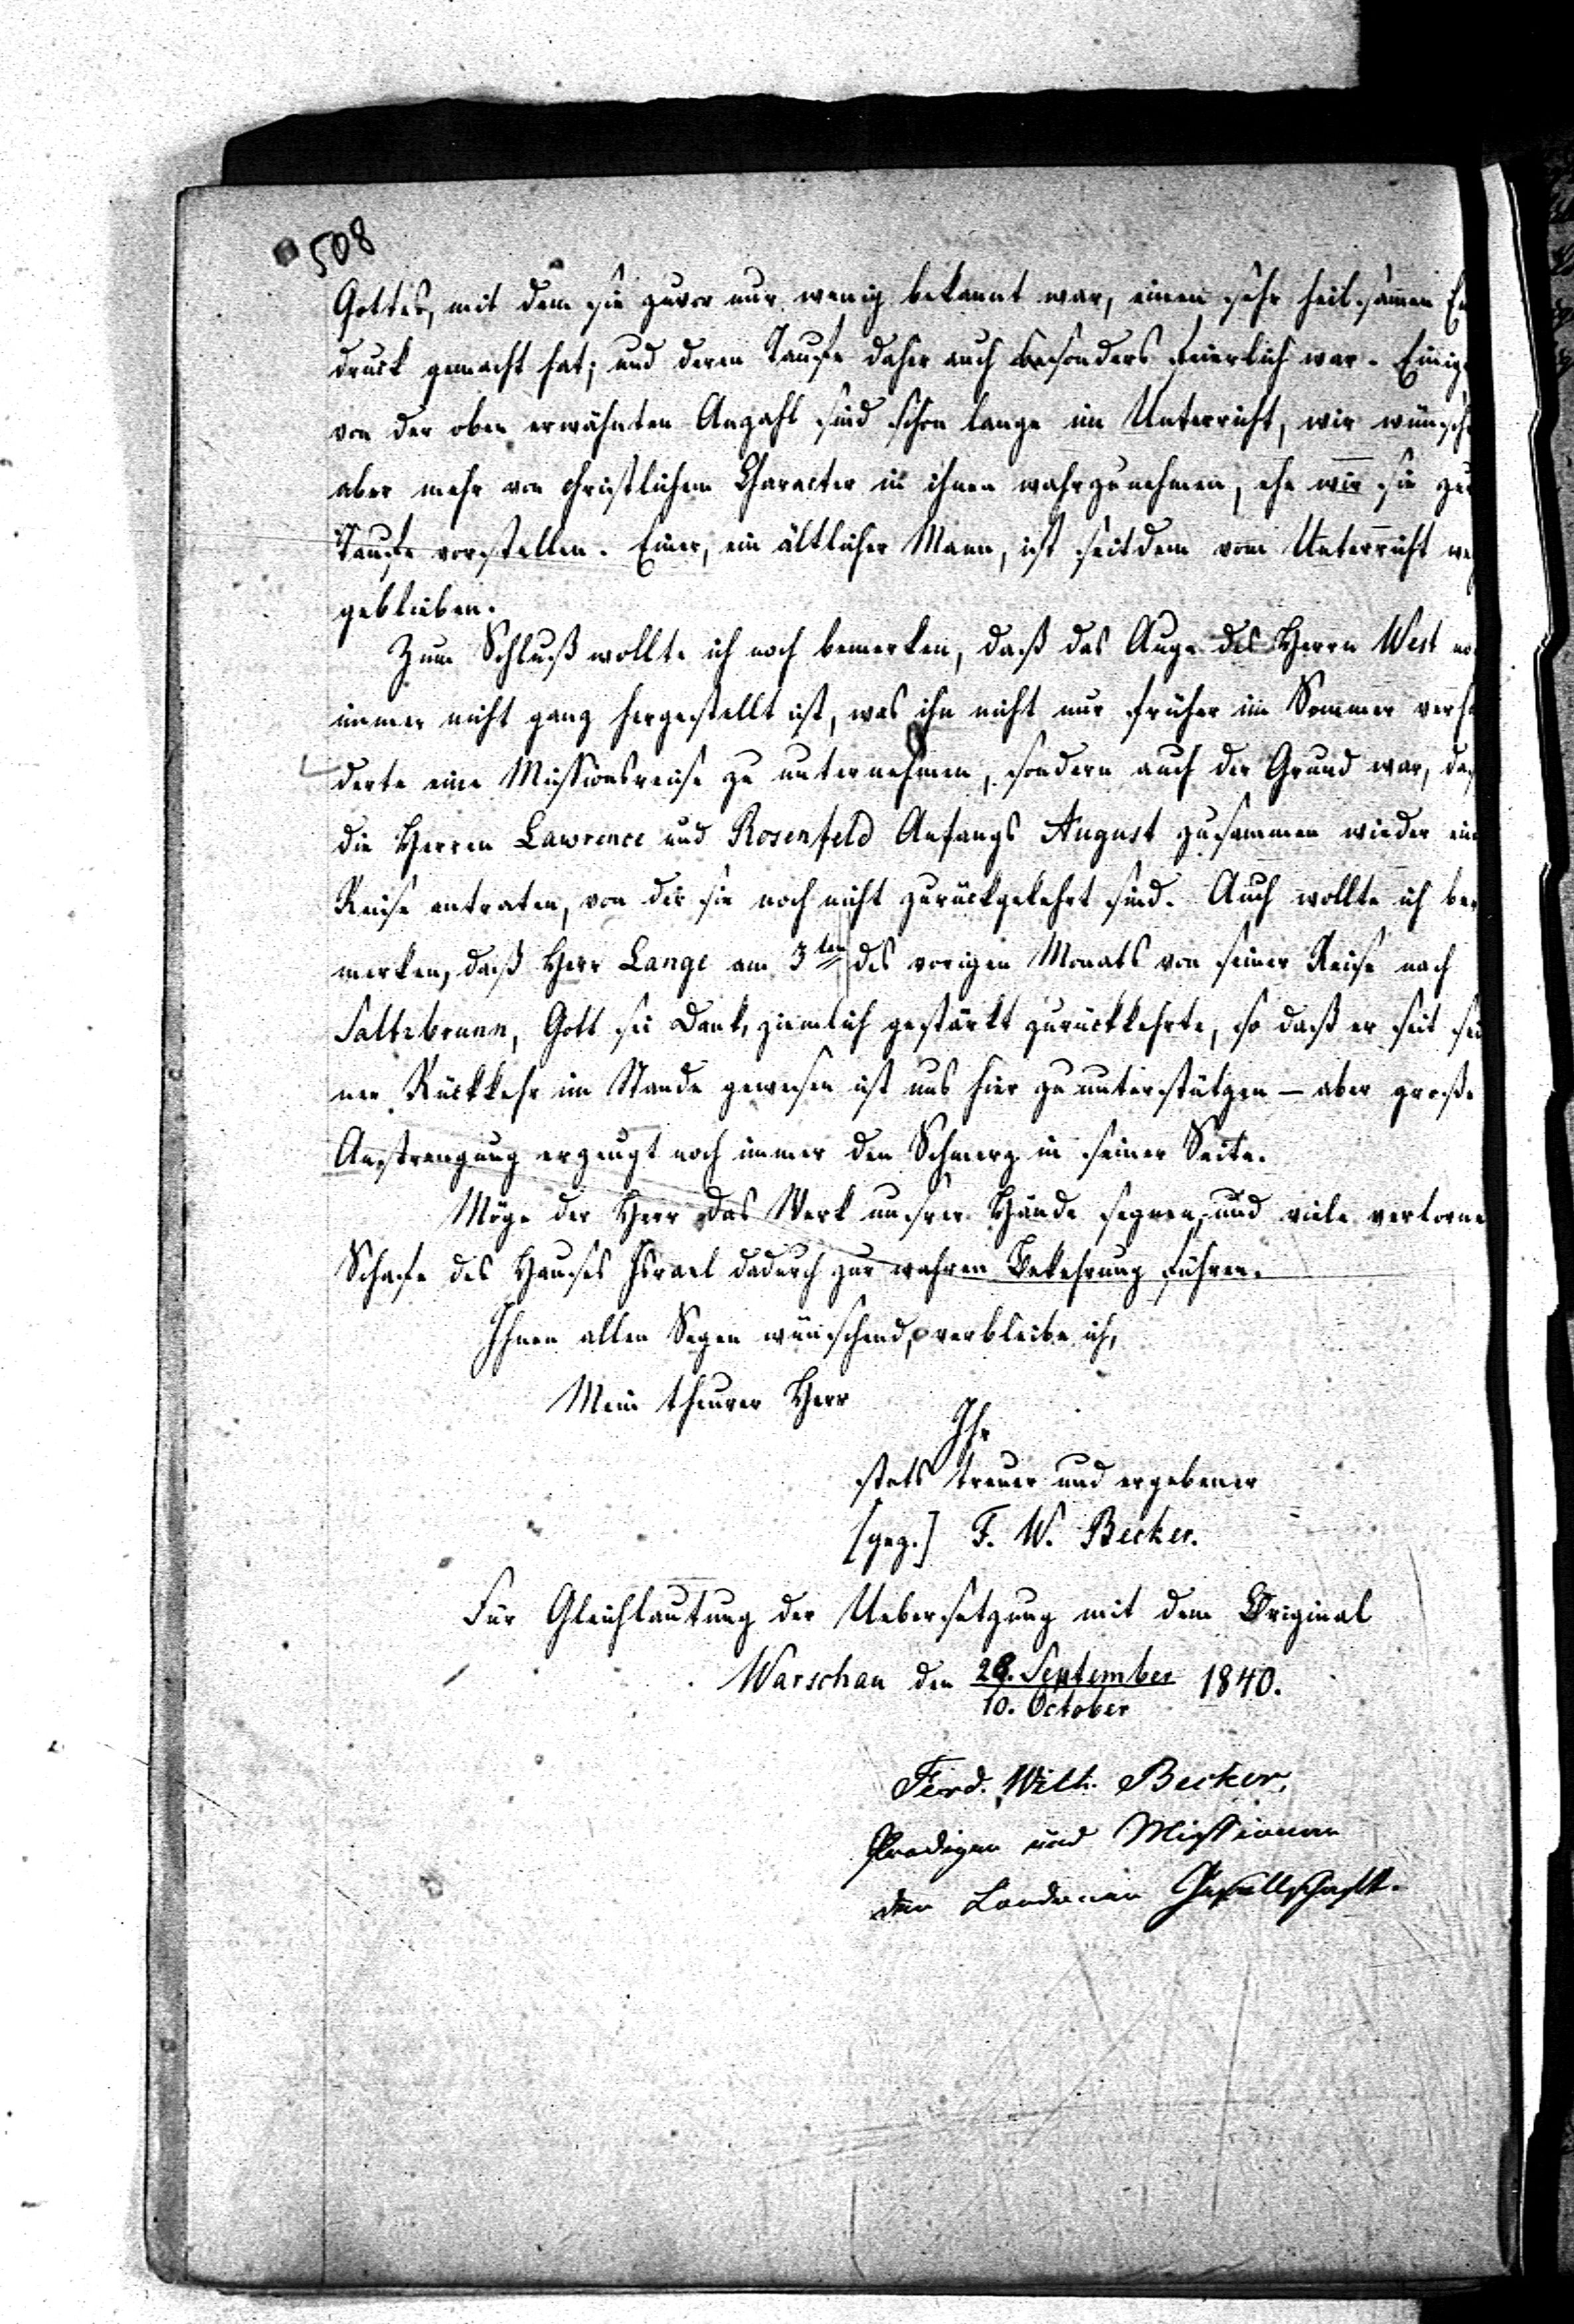 508
Gottes, mit dem sie zuvor nur wenig bekannt war, einen sehr heilsamen Ein
druck gemacht hat; und deren Taufe daher auch besonders feierlich war. Einige
von der oben erwähnten Anzahl sind schon lange im Unterricht, wir wünsche
aber mehr von christlichem Character in ihnen wahrzunehmen, ehe wir sie zur
Taufe vorstellen. Einer, ein ältlicher Mann, ist seitdem vom Unterricht weg
geblieben.
Zum Schluß wollte ich noch bemerken, daß das Auge des Herrn West no
immer nicht ganz hergestellt ist, was ihn nicht nur früher im Sommer verhi
derte eine Missionsreise zu unternehmen, sondern auch der Grund war, daß
die Herren Lawrence und Rosenfeld Anfangs August zusammen wieder eine
Reise antraten, von der sie noch nicht zurückgekehrt sind. Auch wollte ich be-
merken, daß Herr Lange am 3ten des vorigen Monats von seiner Reise nach
Saltzbrunn, Gott sei Dank, ziemlich gestärkt zurückkehrte, so daß er seit sei
ner Rückkehr im Stande gewesen ist uns hier zu unterstützen – aber große
Anstrengung erzeugt noch immer den Schmerz in seiner Seite.
Möge der Herr das Werk unsrer Hände segnen, und viele verlorne
Schafe des Hauses Israel dadurch zur wahren Bekehrung führen.
Ihnen allen Segen wünschend, verbleibe ich,
Mein theurer Herr
Ihr
stets treuer und ergebener
[gez.] F. W. Becker.
Für Gleichlautung der Uebersetzung mit dem Original
Warschau den 28. September 1840.
10. October
Ferd. Wilh. Becker,
Prediger und Missionar
der Londoner Gesellschaft.